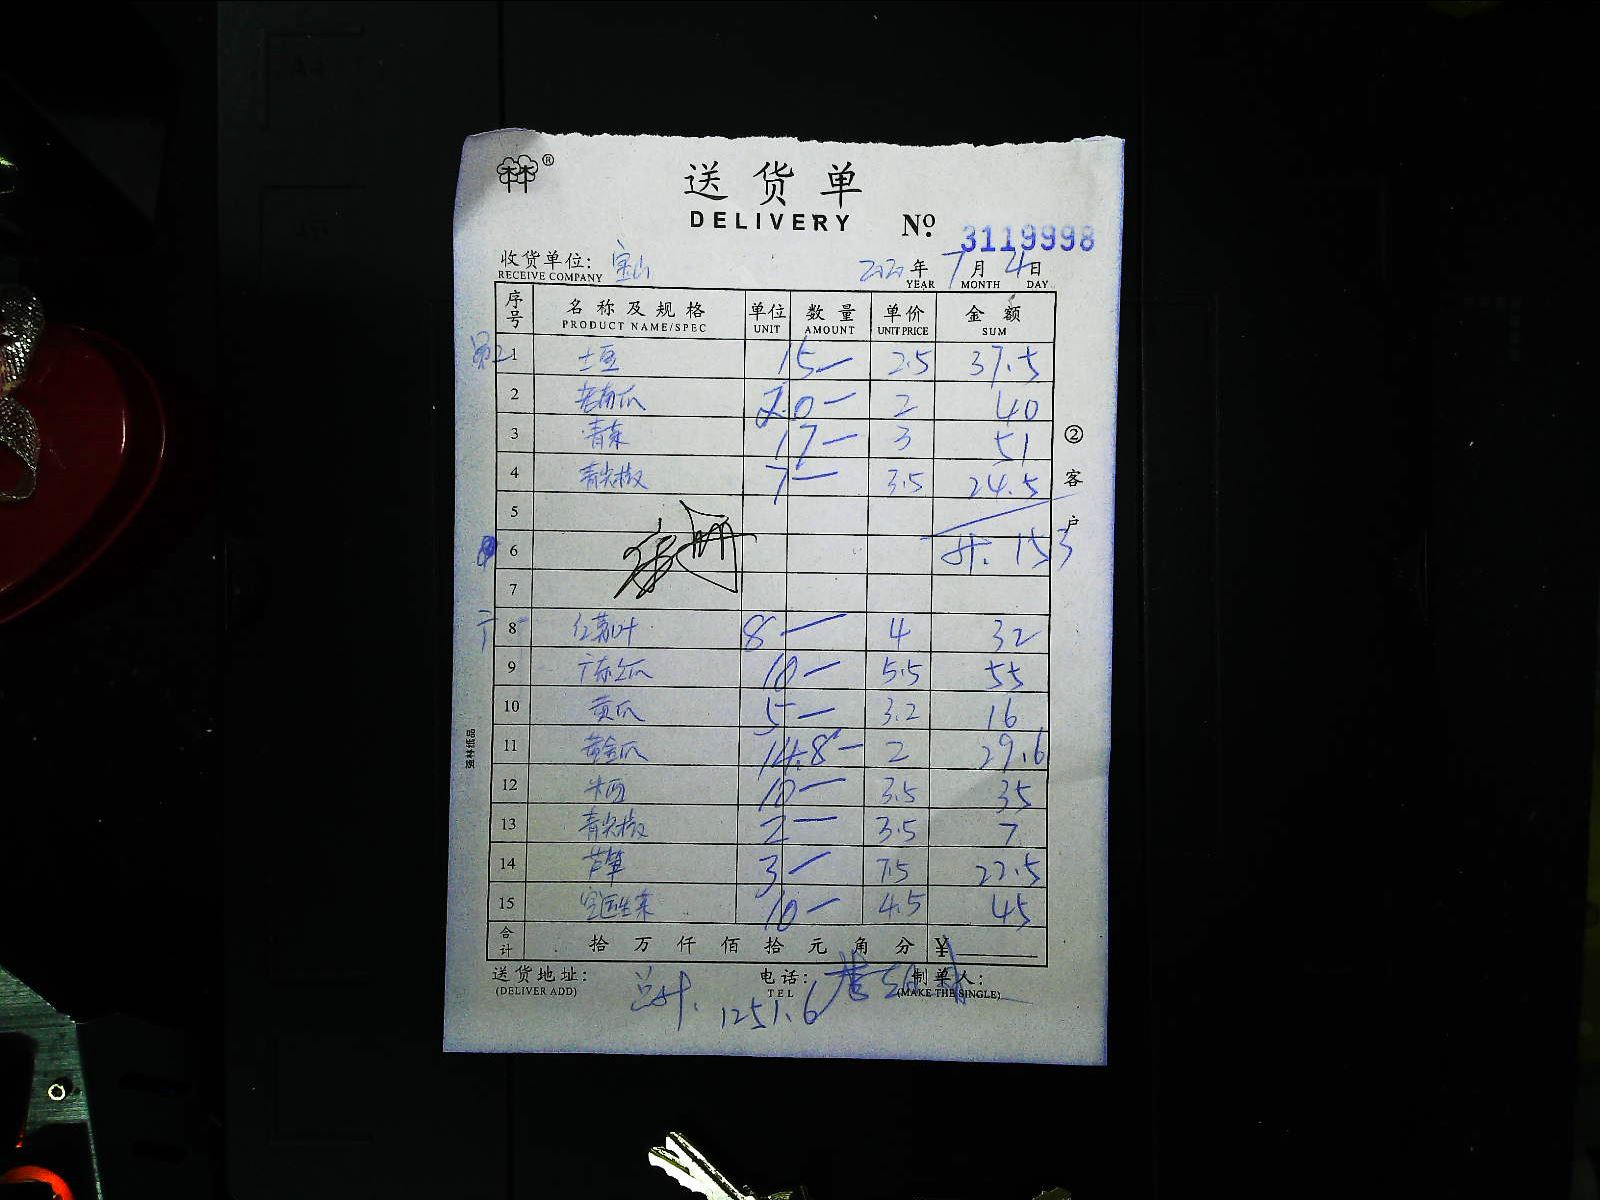 林®
送货单
DELIVERY
№ 3119998
收货单位: 宝山
RECEIVE COMPANY
2020年7月4日
YEAR MONTH DAY
序号 名称及规格 单位 数量 单价 金额
PRODUCT NAME/SPEC UNIT AMOUNT UNIT PRICE SUM
1 土豆 15— 2.5 37.5
2 老南瓜 20— 2 40
3 青菜 17— 3 51
4 青尖椒 7— 3.5 24.5
5
6 计. 153
7
8 红薯叶 8— 4 32
9 广东丝瓜 10— 5.5 55
10 黄瓜 5— 3.2 16
11 黄金瓜 14.8— 2 29.6
12 米西 10— 3.5 35
13 青尖椒 2— 3.5 7
14 芦笋 3— 7.5 22.5
15 生菜 10— 4.5 45
合计 拾 万 仟 佰 拾 元 角 分 ¥
②客户
强林纸品
送货地址: 电话: 制单人:
(DELIVER ADD) TEL (MAKE THE SINGLE)
总计. 1251.6